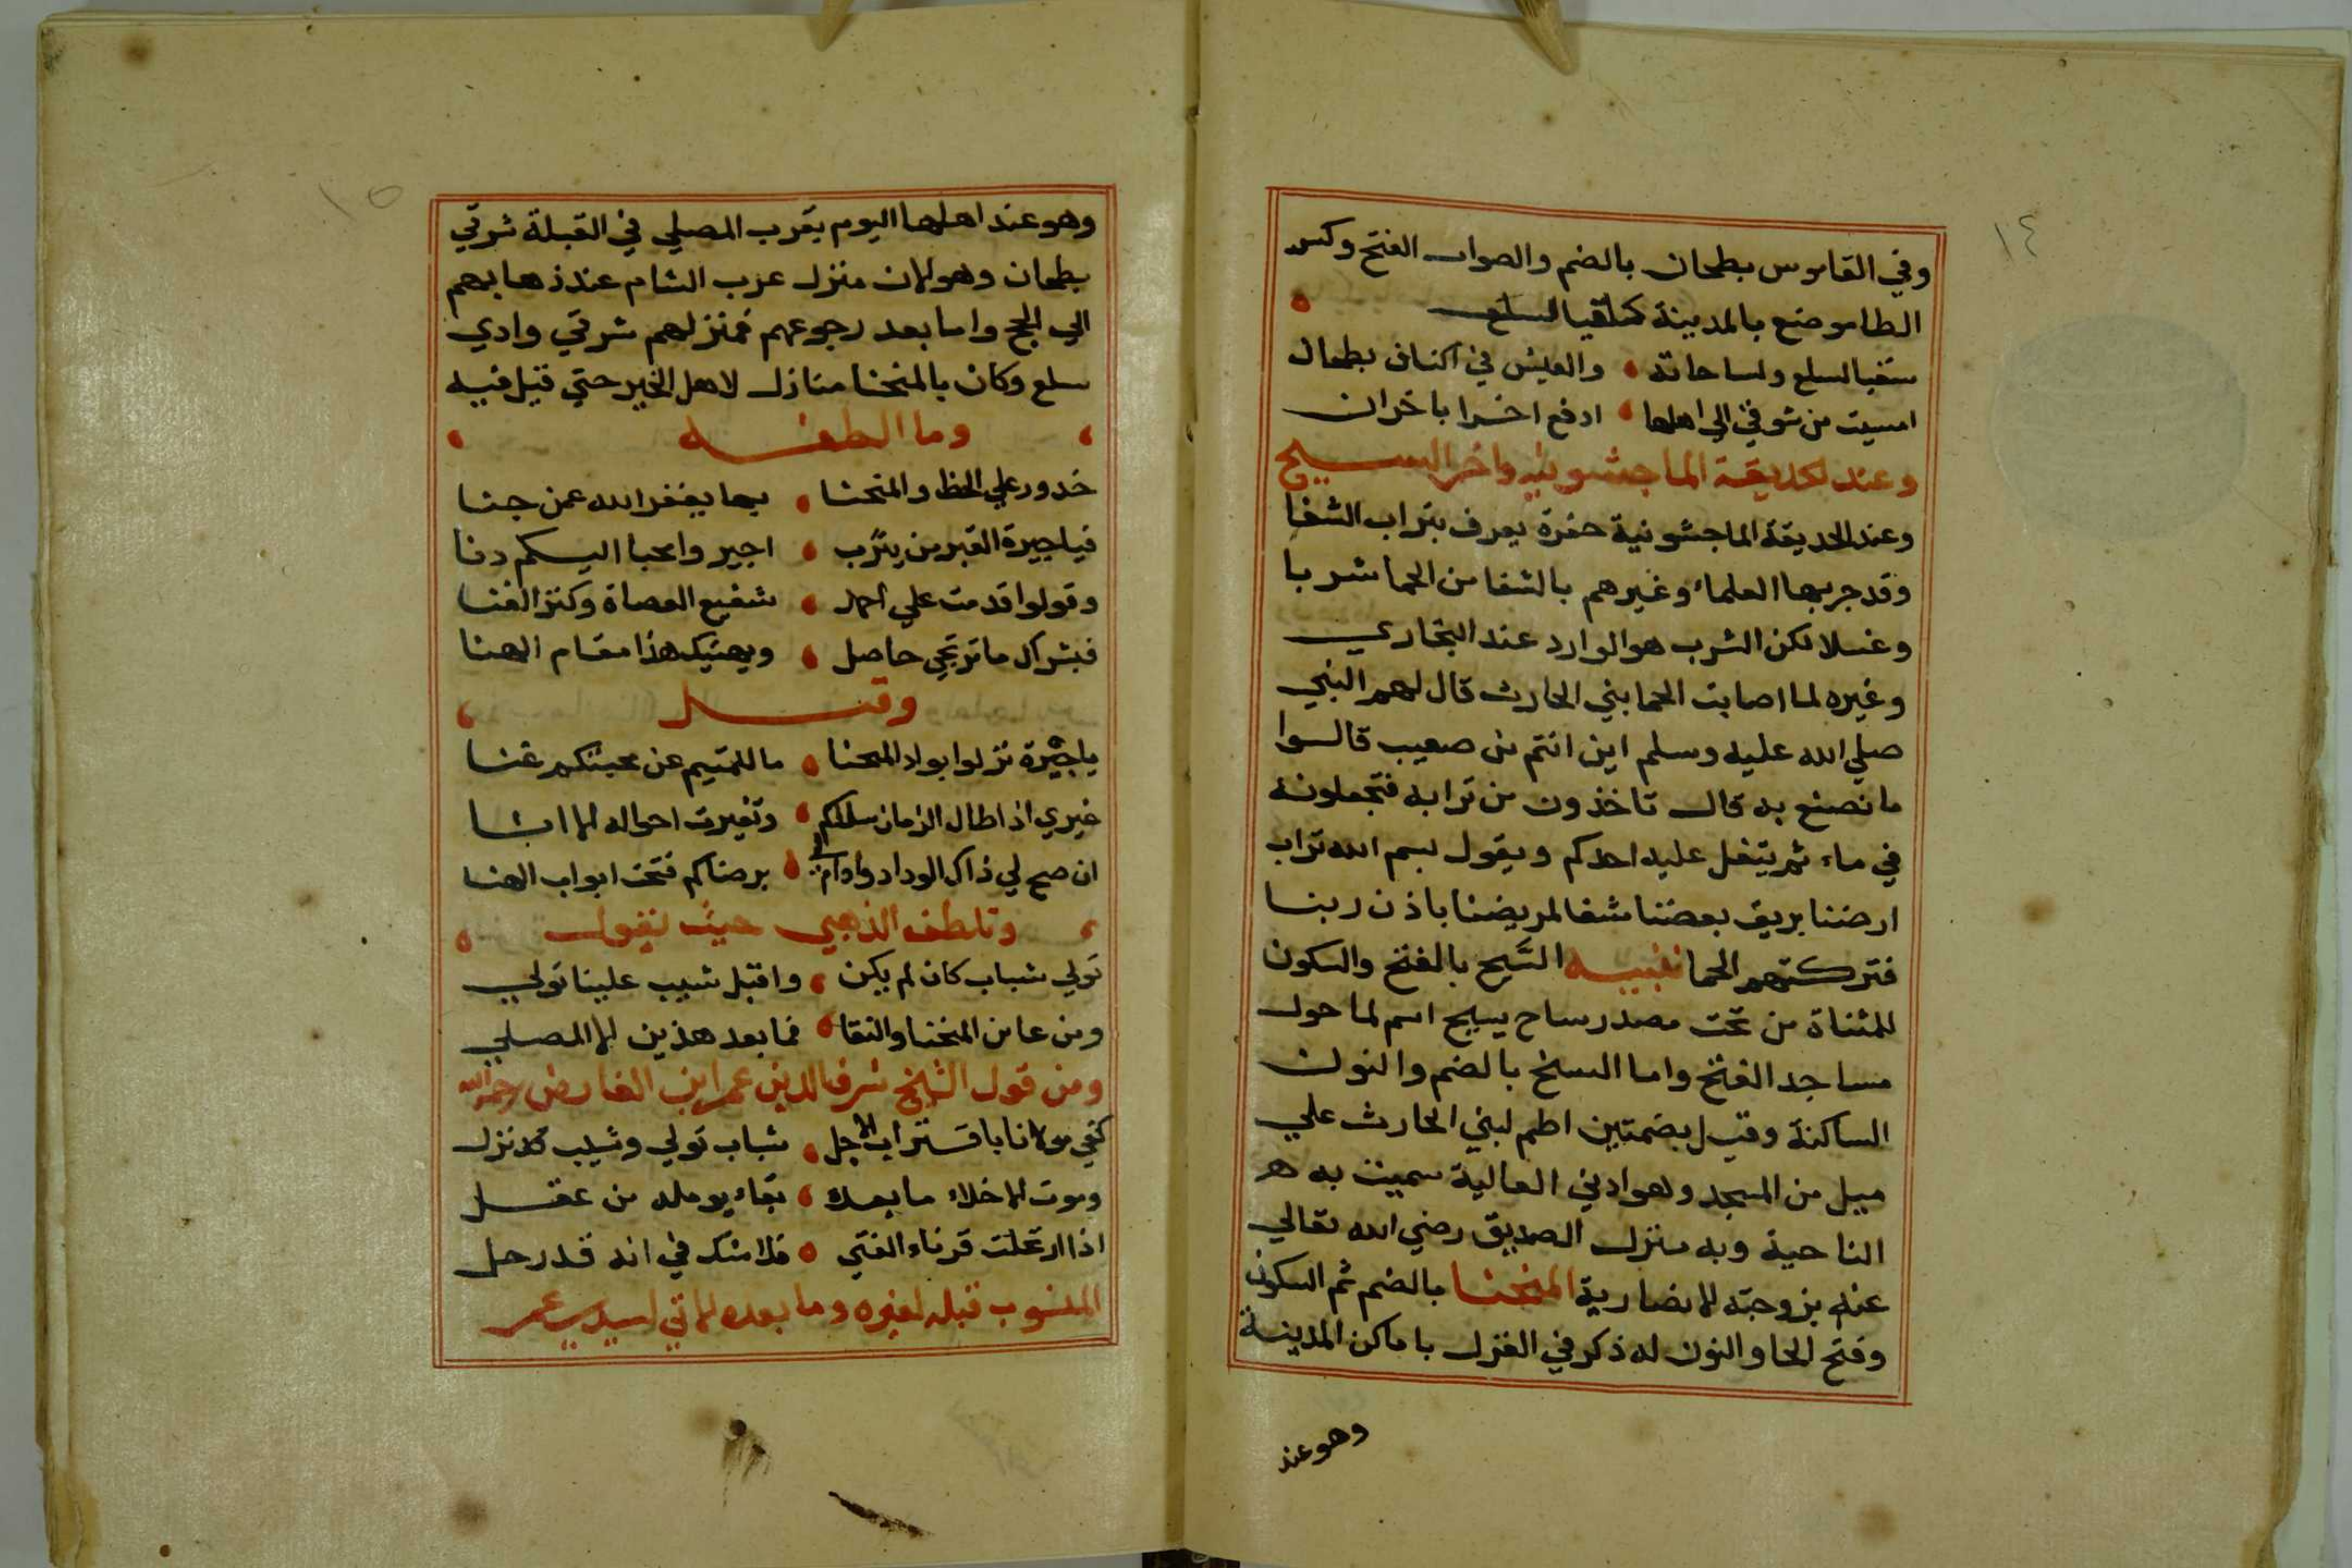 ١٤
وفي القاموس بطحان بالضم والصواب الفتح وكسر
الطا موضع بالمدينة
سقيا لسلع ولساحاته والعيش في اكناف بطحان
امسيت من شوقي الى اهلها ادفع احزانا باحزان
وعند الحديقة الماجشونية واخر السيح
وعند الحديقة الماجشونية حفرة يعرف بتراب الشفا
وقد جربها العلماء وغيرهم بالشفا من الحما شربا
وغسلا لكن الشرب هو الوارد عند البخاري
وغيره لما اصابت الحما بني الحارث قال لهم النبي
صلي الله عليه وسلم اين انتم من صعيب قالوا
ما نصنع به قال تاخذون من ترابه فتجعلونه
في ماء ثم يتفل عليه احدكم ويقول بسم الله تراب
ارضنا بريق بعضنا شفا لمريضنا باذن ربنا
فتركتهم الحما تنبيه السَّيح بالفتح والسكون
للمثناة من تحت مصدر ساح يسيح اسم لما حول
مساجد الفتح واما السنح بالضم والنون
الساكنة وقيل بضمتين اطم لبني الحارث علي
ميل من المسجد وهو ادني العالية سميت به هذه
الناحية وبه منزل الصديق رضي الله تعالي
عنه بزوجته الانصارية المنحنا بالضم ثم السكون
وفتح الحا والنون له ذكر في الغزل باماكن المدينة
وهو عند
١٥
وهو عند اهلها اليوم بقرب المصلي في القبلة شرقي
بطحان وهو الان منزل عرب الشام عند ذهابهم
الي الحج واما بعد رجوعهم فمنزلهم شرقي وادي
سلع وكان بالمنحنا منازل لاهل الخير حتي قيل فيه
وما الطفه
خدور علي الحظ والمنحنا بها يغفر الله عمن جنا
فيا جيرة القبر من يثرب اجيروا محبا اليكم دنا
وقولوا قدمت علي احمد شفيع العصاة وكنز الغنا
فبشراك ما ترتجي حاصل ويهنيك هذا مقام الهنا
وقيل
يا جيرة نزلوا بواد المنحنا ما للمتيم عن محبتكم غنا
غيري اذا طال الزمان سلاكم وتغيرت احواله الا انا
ان صح لي ذاك الوداد ودام لي برضاكم فتحت ابواب الهنا
وتلطف الذهبي حيث يقول
تولي شباب كان لم يكن واقبل شيب علينا تولي
ومن عاين المنحنا والنقا فما بعد هذين الا المصلي
ومن قول الشيخ شرف الدين عمر ابن الفارض رحمه الله
كفي موتانا باقتراب الاجل شباب تولي وشيب نزل
وموت الاخلاء ما بعده بقاء يومله من عقل
اذا ارتحلت قرناء الفتي فلا شك في انه قد رحل
المنسوب قبله لغيره وما بعده الاتي لسيدي عمر